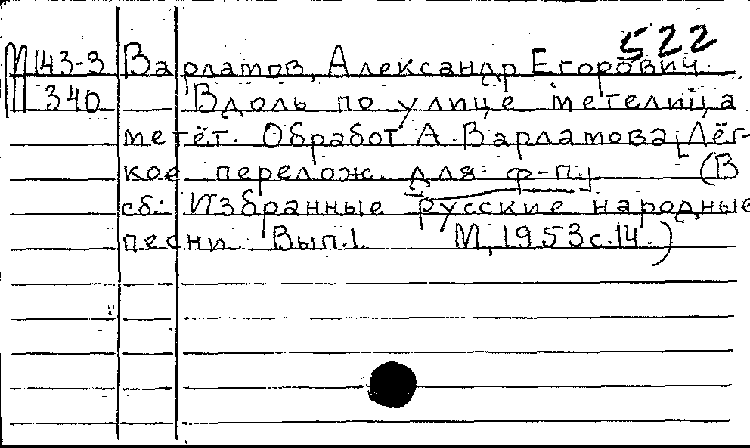 522
М 143-3 Варламов, Александр Егорович.
340 Вдоль по улице метелица
метёт. Обработ А. Варламова [Лёг-
кое перелож. для ф-п.] (В
сб: Избранные русские народные
песни. Вып.1. М, 1953 с.14.)